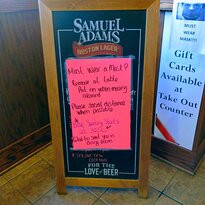 SAMUEL
ADAMS
BOSTON LAGER
Must Wear a Mask?
Remove at table
Put on when moving
around
Please social distance
when possible
Glad to see you
FOR THE
LOVE OF BEER
MUST
WEAR
MASK!!!
Gift
Cards
Available
at
Take Out
Counter